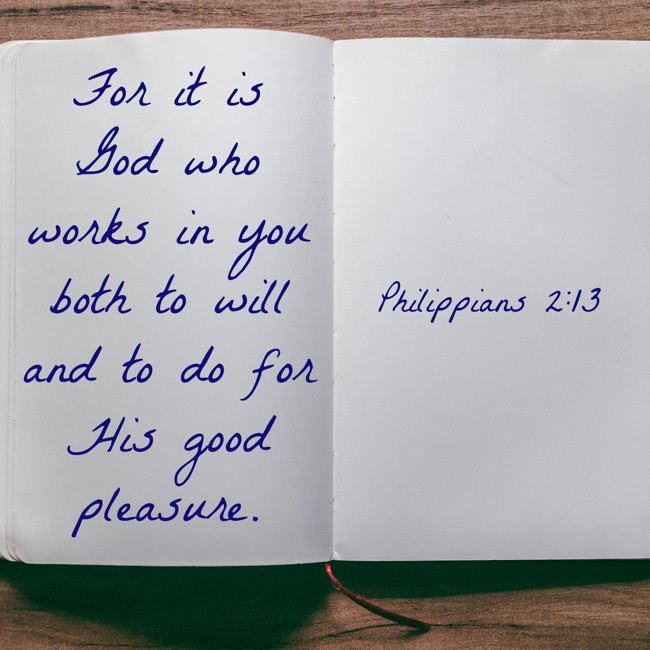 For it is
God who
works in you
both to will
and to do for
His good
pleasure.
Philippians 2:13